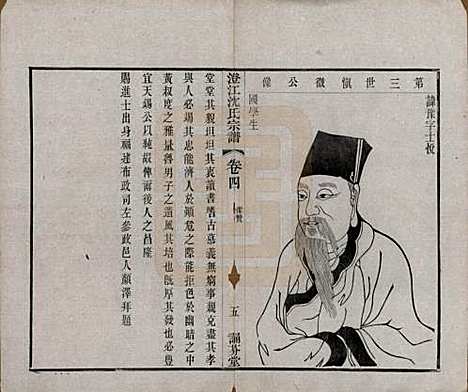 第三世慎徵公像
諱孫字士恆
國學生
澄江沈氏宗譜
卷四
像贊
五
誦芬堂
堂堂其貌坦坦其衷讀書嗜古慕義無窮事親克盡其孝
與人必竭其忠能濟人於顛危之際能拒色於幽暗之中
黃叔度之雅量魯男子之遺風其培也既厚其發也必豐
宜天錫公以純嘏俾爾後人之昌隆
賜進士出身福建布政司左參政邑人顏澤拜題